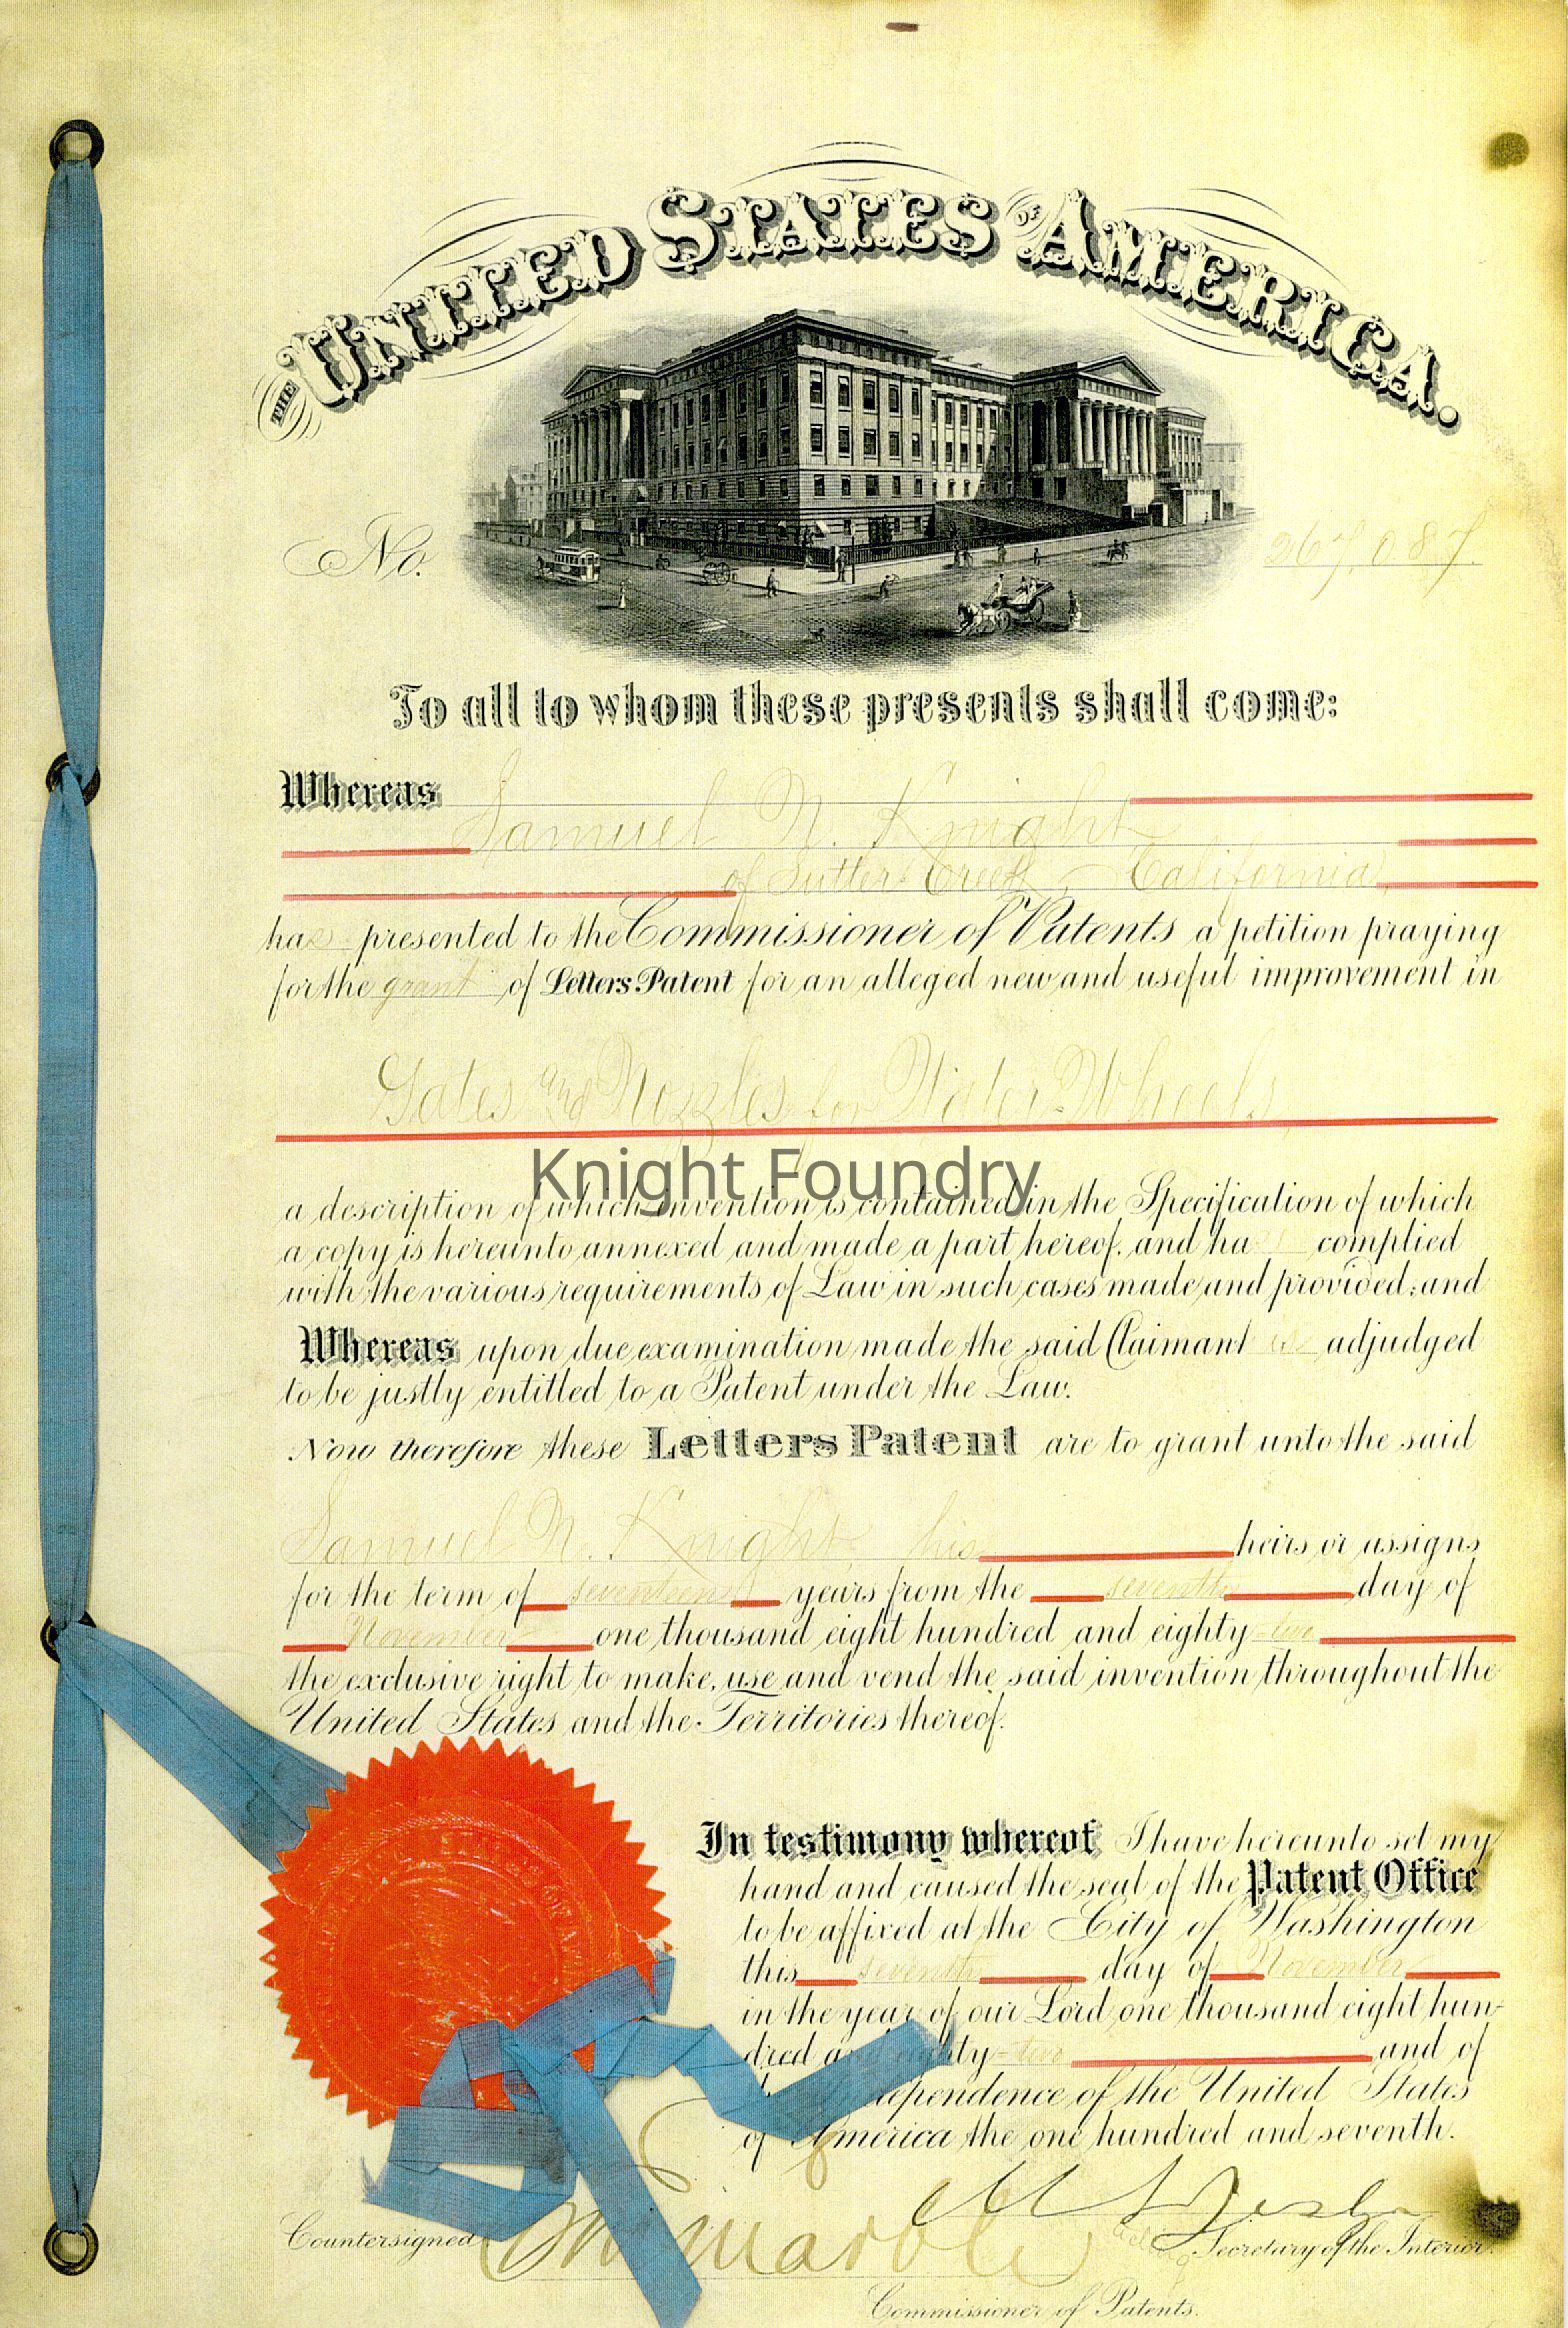 THE UNITED STATES OF AMERICA.
No. 267,087.
To all to whom these presents shall come:
Whereas
Samuel N. Knight
of Sutter Creek, California,
has presented to the Commissioner of Patents a petition praying
for the grant of Letters Patent for an alleged new and useful improvement in
Gates and Nozzles for Water-Wheels,
Knight Foundry
a description of which invention is contained in the Specification of which
a copy is hereunto annexed and made a part hereof, and ha complied
with the various requirements of Law in such cases made and provided; and
Whereas upon due examination made the said Claimant is adjudged
to be justly entitled to a Patent under the Law.
Now therefore these Letters Patent are to grant unto the said
Samuel N. Knight, his heirs or assigns
for the term of seventeen years from the seventh day of
November one thousand eight hundred and eighty-two
the exclusive right to make, use and vend the said invention throughout the
United States and the Territories thereof.
In testimony whereof I have hereunto set my
hand and caused the seal of the Patent Office
to be affixed at the City of Washington
this seventh day of November
in the year of our Lord one thousand eight hun-
dred and eighty-two and of
Independence of the United States
of America the one hundred and seventh.
Countersigned
Marble
Acting Secretary of the Interior.
Commissioner of Patents.